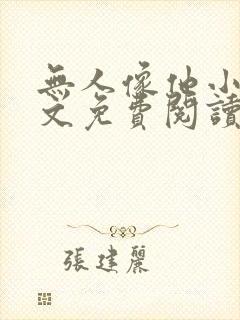 無人像他小
文免費閱讀
張建麗